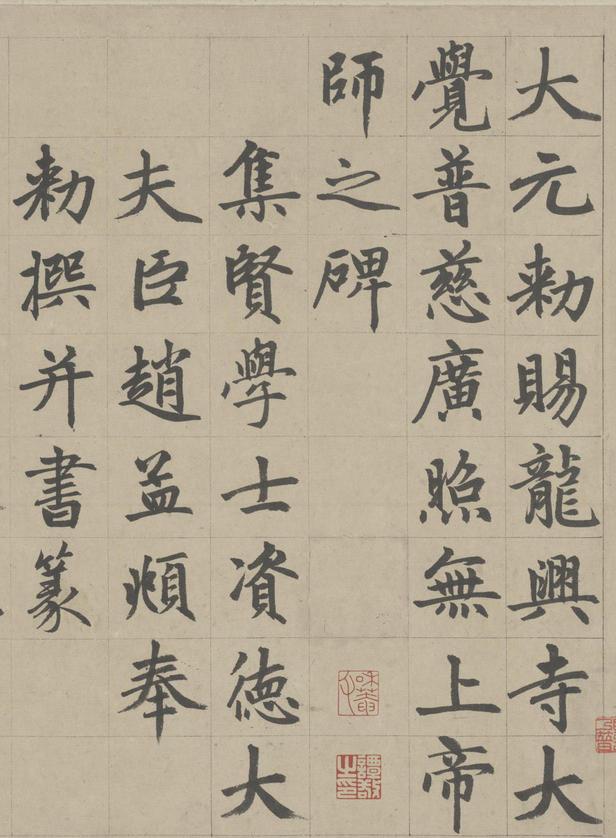 大元勅賜龍興寺大
覺普慈廣照無上帝
師之碑
集賢學士資德大
夫臣趙孟頫奉
勅撰并書篆
譚敬之印